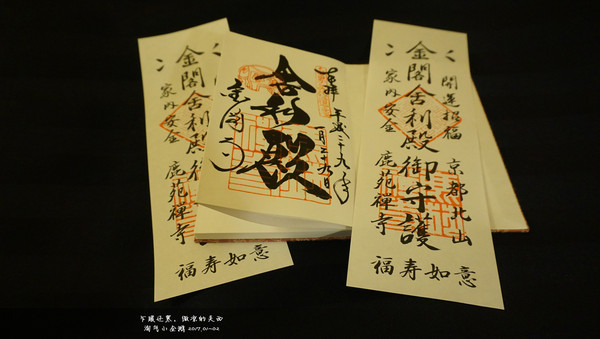 金閣舎利殿
家内安全 鹿苑禅寺
福寿如意
奉拝 平成二十九年
舎利殿
金閣寺
開運招福 京都北山
金閣舎利殿御守護
家内安全 鹿苑禅寺
福寿如意
乍暖还寒，微凉的关西
淘气小金鹏 2017.01-02